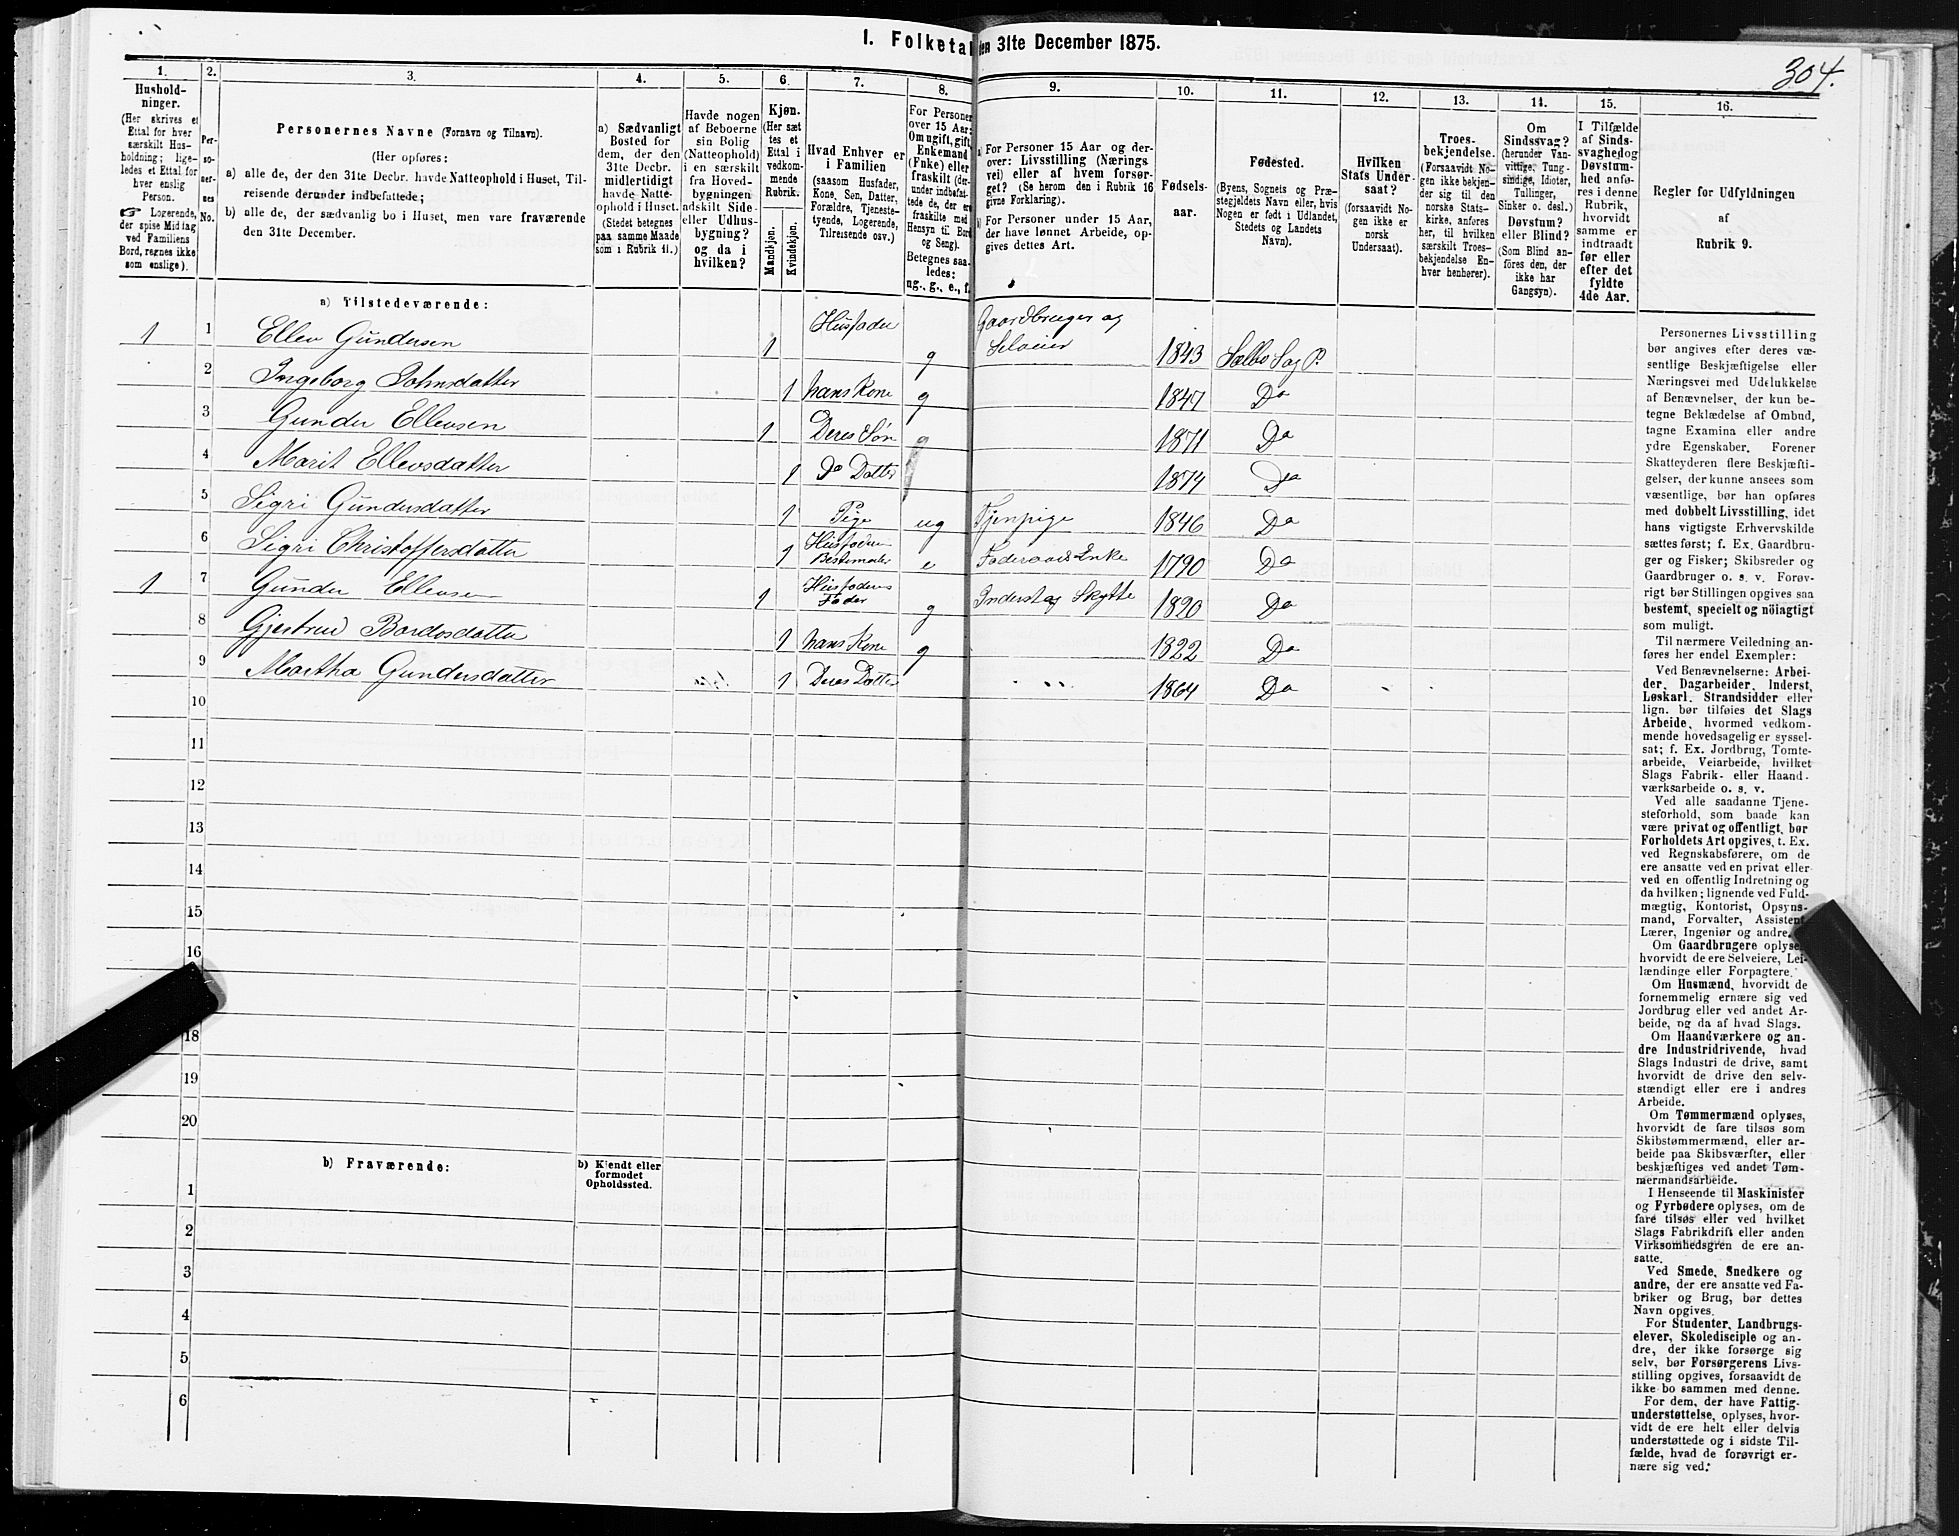 I. Folketal den 31te December 1875.
304.
1.
Hushold-
ninger.
(Her skrives et
Ettal for hver
særskilt Hus-
holdning; lige-
ledes et Ettal for
hver enslig
Person.
☞ Logerende,
der spise Middag
ved Familiens
Bord, regnes ikke
som enslige).
2.
Per-
so-
ner-
nes
No.
3.
Personernes Navne (Fornavn og Tilnavn).
(Her opføres:
a) alle de, der den 31te Decbr. havde Natteophold i Huset, Til-
reisende derunder indbefattede;
b) alle de, der sædvanlig bo i Huset, men vare fraværende
den 31te December.
4.
a) Sædvanligt
Bosted for
dem, der den
31te Decbr.
midlertidigt
havde Natte-
ophold i Huset.
(Stedet betegnes
paa samme Maade
som i Rubrik 11.)
5.
Havde nogen
af Beboerne
sin Bolig
(Natteophold)
i en særskilt
fra Hoved-
bygningen
adskilt Side-
eller Udhus-
bygning?
og da i
hvilken?
6.
Kjøn.
(Her sæt
tes et
Ettal i
vedkom-
mende
Rubrik.
Mandkjøn.
Kvindekjøn.
7.
Hvad Enhver er
i Familien
(saasom Husfader,
Kone, Søn, Datter,
Forældre, Tjeneste-
tyende, Logerende,
Tilreisende osv.)
8.
For Personer
over 15 Aar:
Om ugift, gift,
Enkemand
(Enke) eller
fraskilt (der-
under indbefat-
tede de, der ere
fraskilte med
Hensyn til Bord
og Seng).
Betegnes saa-
ledes:
ug., g., e., f.
9.
a) For Personer 15 Aar og der-
over: Livsstilling (Nærings-
vei) eller af hvem forsør-
get? (Se herom den i Rubrik 16
givne Forklaring).
b) For Personer under 15 Aar,
der have lønnet Arbeide, op-
gives dettes Art.
10.
Fødsels-
aar.
11.
Fødested.
(Byens, Sognets og Præ-
stegjeldets Navn eller, hvis
Nogen er født i Udlandet,
Stedets og Landets
Navn).
12.
Hvilken
Stats Under-
saat?
(forsaavidt No-
gen ikke er
norsk
Undersaat).
13.
Troes-
bekjendelse.
(Forsaavidt No-
gen ikke bekjen-
der sig til den
norske Stats-
kirke, anføres
her, til hvilken
særskilt Troes-
bekjendelse En-
hver henhører).
14.
Om
Sindssvag?
(herunder Van-
vittige, Tung-
sindige, Idioter,
Tullinger,
Sinker o. desl.)
Døvstum?
eller Blind?
(Som Blind an-
føres den, der
ikke har
Gangsyn).
15.
I Tilfælde
af Sinds-
svaghed og
Døvstum-
hed anfø-
res i denne
Rubrik,
hvorvidt
samme er
indtraadt
før eller
efter det
fyldte
4de Aar.
16.
Regler for Udfyldningen
af
Rubrik 9.
a) Tilstedeværende:
1 1 Ellev Gundersen 1 Husfader g Gaardbruger og Selveier 1843 Sælbo Sog P.
2 Ingeborg Johnsdatter 1 hans Kone g 1847 Do
3 Gunder Ellevsen 1 Deres Søn g 1871 Do
4 Marit Ellevsdatter 1 Do Datter 1874 Do
5 Sigri Gundersdatter 1 Pige ug Tjenpige 1846 Do
6 Sigri Christoffersdatter 1 Husfaders Bestemoder e Foderaads Enke 1790 Do
1 7 Gunder Ellevsen 1 Husfaders Fader g Inderst og Skytte 1820 Do
8 Gjertrud Bardosdatter 1 hans Kone g 1822 Do
9 Martha Gundersdatter 1 Deres Datter 1864 Do
10
11
12
13
14
15
16
18
19
20
b) Fraværende:
b) Kjendt eller
formodet
Opholdssted.
1
2
3
4
5
6
Personernes Livsstilling
bør angives efter deres væ-
sentlige Beskjæftigelse eller
Næringsvei med Udelukkelse
af Benævnelser, der kun be-
tegne Beklædelse af Ombud,
tagne Examina eller andre
ydre Egenskaber. Forener
Skatteyderen flere Beskjæfti-
gelser, der kunne ansees som
væsentlige, bør han opføres
med dobbelt Livsstilling, idet
hans vigtigste Erhvervskilde
sættes først; f. Ex. Gaardbru-
ger og Fisker; Skibsreder og
Gaardbruger o. s. v. Forøv-
rigt bør Stillingen opgives saa
bestemt, specielt og nöiagtigt
som muligt.
Til nærmere Veiledning an-
føres her endel Exempler:
Ved Benævnelserne: Arbei-
der, Dagarbeider, Inderst,
Løskarl, Strandsidder eller
lign. bør tilføies det Slags
Arbeide, hvormed vedkom-
mende hovedsagelig er syssel-
sat; f. Ex. Jordbrug, Tomte-
arbeide, Veiarbeide, hvilket
Slags Fabrik- eller Haand-
værksarbeide o. s. v.
Ved alle saadanne Tjene-
steforhold, som baade kan
være privat og offentligt, bør
Forholdets Art opgives, t. Ex.
ved Regnskabsførere, om de
ere ansatte ved en privat eller
ved en offentlig Indretning og
da hvilken; lignende ved Fuld-
mægtig, Kontorist, Opsyns-
mand, Forvalter, Assistent,
Lærer, Ingeniør og andre.
Om Gaardbrugere oplyses,
hvorvidt de ere Selveiere, Lei-
lændinge eller Forpagtere.
Om Husmænd, hvorvidt de
fornemmelig ernære sig ved
Jordbrug eller ved andet Ar-
beide, og da af hvad Slags.
Om Haandværkere og an-
dre Industridrivende, hvad
Slags Industri de drive, samt
hvorvidt de drive den selv-
stændigt eller ere i andres
Arbeide.
Om Tømmermænd oplyses,
hvorvidt de fare tilsøs som
Skibstømmermænd, eller ar-
beide paa Skibsværfter, eller
beskjæftiges ved andet Tøm-
mermandsarbeide.
I Henseende til Maskinister
og Fyrbødere oplyses, om de
fare tilsøs eller ved hvilket
Slags Fabrikdrift eller anden
Virksomhedsgren de ere an-
satte.
Ved Smede, Snedkere og
andre, der ere ansatte ved Fa-
briker og Brug, bør dettes
Navn opgives.
For Studenter, Landbrugs-
elever, Skoledisciple og an-
dre, der ikke forsørge sig
selv, bør Forsørgerens Livs-
stilling opgives, forsaavidt de
ikke bo sammen med denne.
For dem, der have Fattig-
understøttelse, oplyses, hvor-
vidt de ere helt eller delvis
understøttede og i sidste Til-
fælde, hvad de forøvrigt er-
nære sig ved.